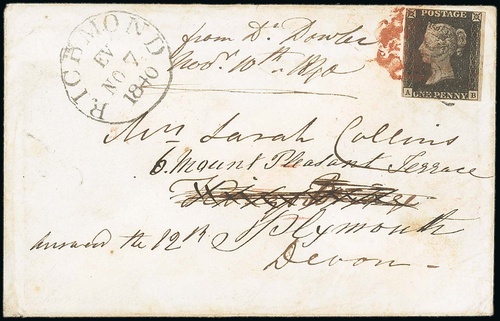 RICHMOND
EV
NO 7
1840
from Dr.
Novr. 10th 1840
POSTAGE
A B
ONE PENNY
Mrs Sarah Collins
6 Mount Pleasant Terrace
Plymouth
Devon
answd the 12th